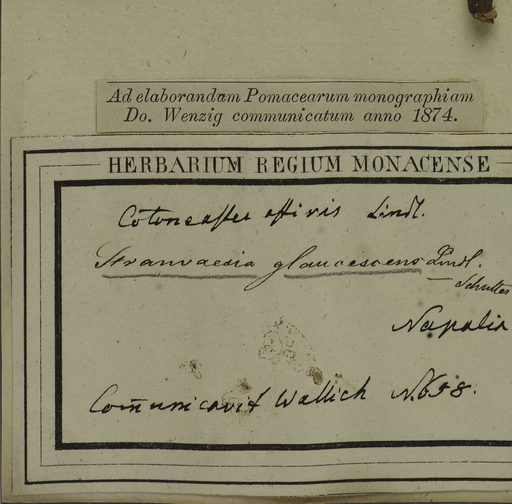 Ad elaborandam Pomacearum monographiam
Do. Wenzig communicatum anno 1874.
HERBARIUM REGIUM MONACENSE
Cotoneaster affinis Lindl.
Stranvaesia glaucescens Lindl.
Schultes
Napalia
Com̄unicavit Wallich N. 658.